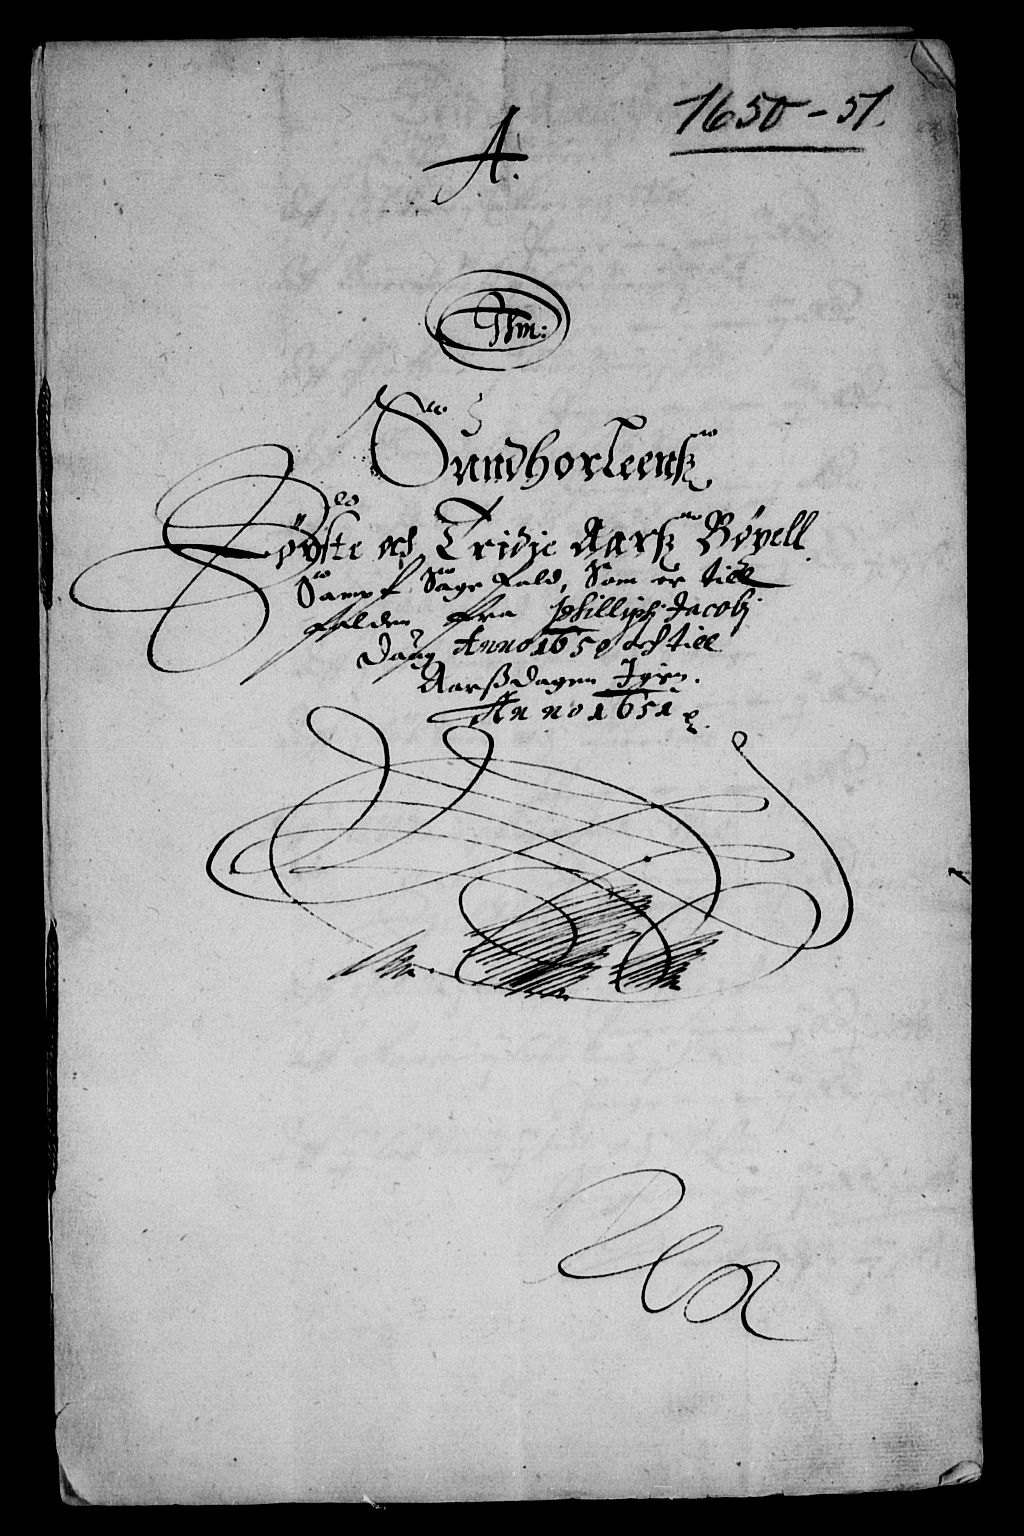 1650-51.
A.
Sundhorleenß
Første och Tridie Aarß Bøxell
Sampt Sage fald, Som er till
falden fra Phillipi Jacobj
Daug Anno 1650 och till
Aarßdagen Igien.
Anno 1651